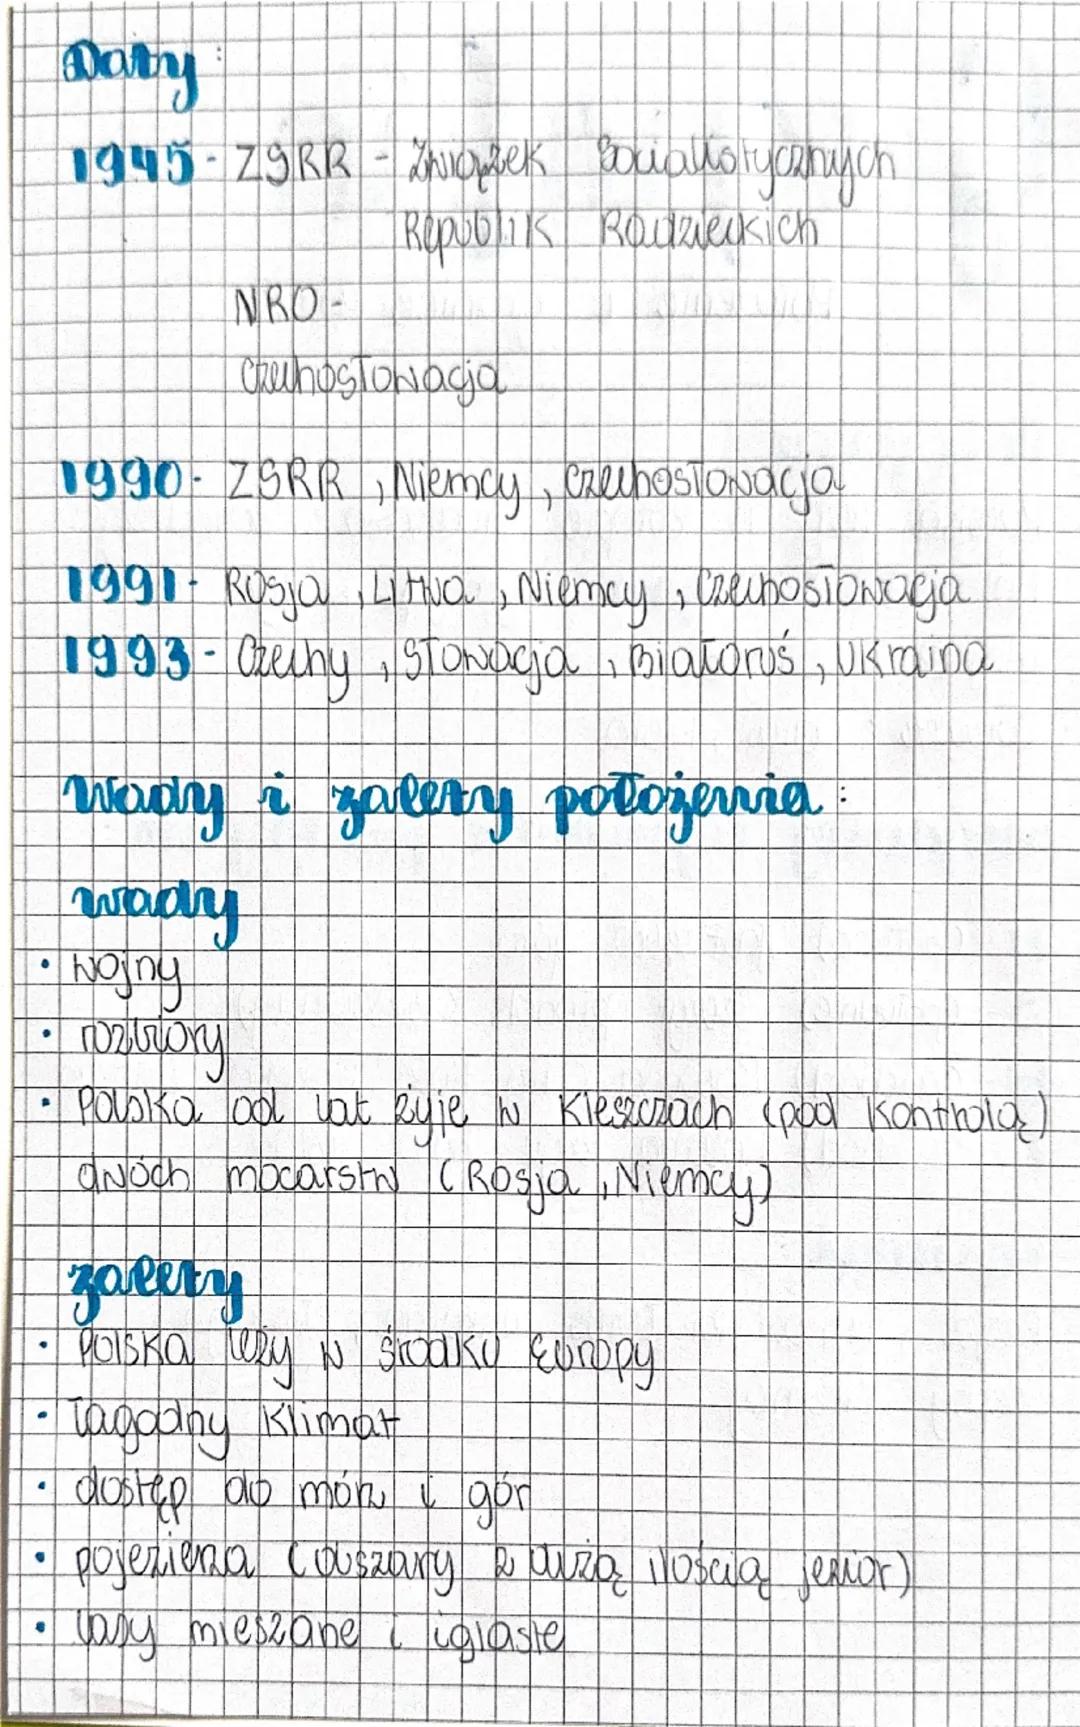 Daty:
1945 - ZSRR - Związek Socjalistycznych
Republik Radzieckich
NRD -
Czechosłowacja
1990 - ZSRR, Niemcy, Czechosłowacja
1991 - Rosja, Litwa, Niemcy, Czechosłowacja
1993 - Czechy, Słowacja, Białoruś, Ukraina
Wady i zalety położenia:
wady
• wojny
• rozbiory
• Polska od lat żyje w kleszczach (pod kontrolą)
dwóch mocarstw (Rosja, Niemcy)
zalety
• Polska leży w środku Europy
• łagodny klimat
• dostęp do mórz i gór
• pojezierza (obszary z dużą ilością jezior)
• lasy mieszane i iglaste